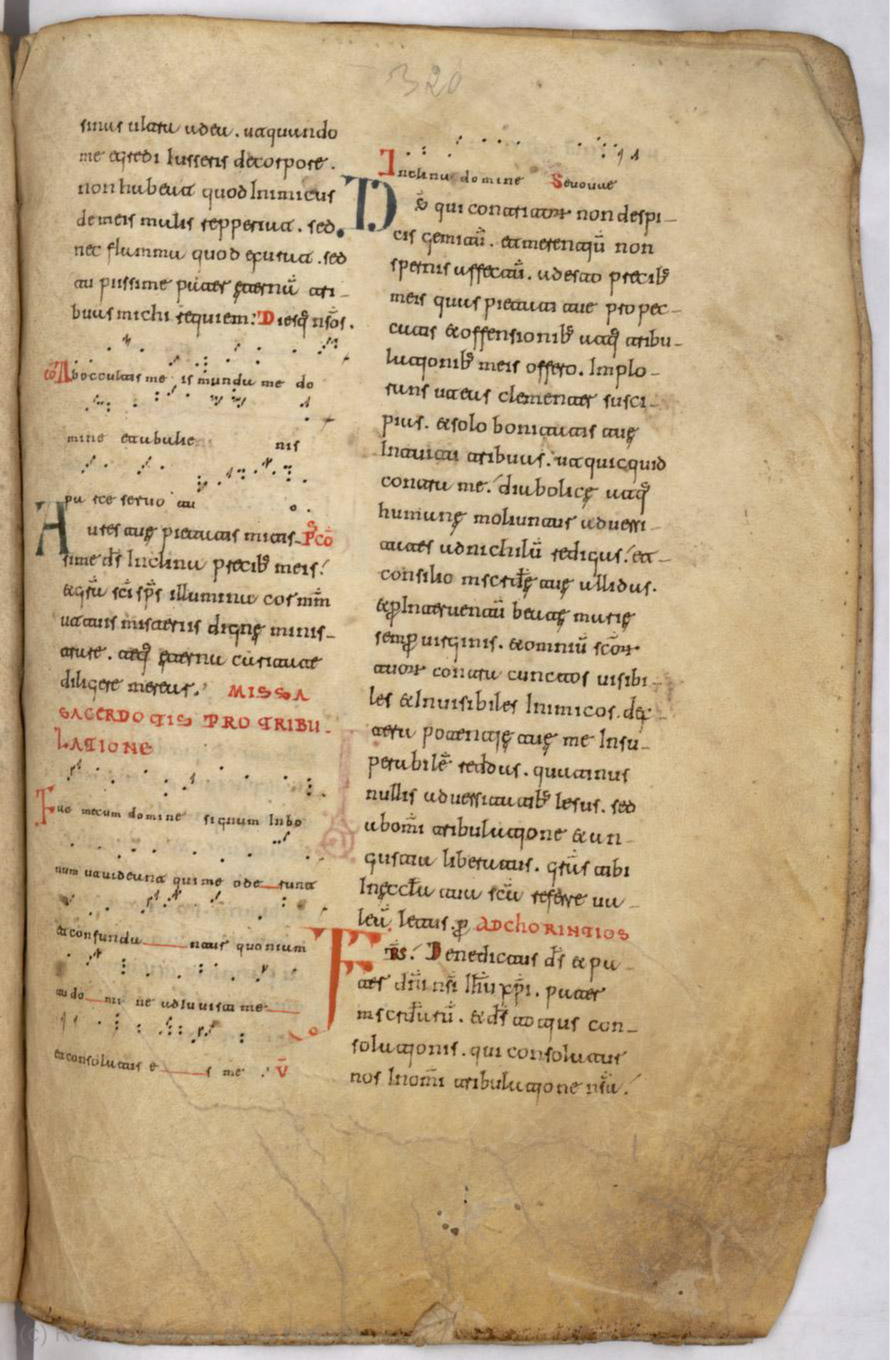 me egredi iusseris de corpore.
non habeat quod inimicus
de meis malis repperiat. sed
nec flamma quod exurat. sed
tu piissime pater eternū tri-
buas michi requiem: Diesq; nr̄os.
co Ab occultis me is munda me do
mine et ab alie nis
pa rce seruo tu o.
Aures tue pietatis mitis- Pcō
sime ds̄ Inclina precib; meis!
et grā sc̄i sp̄s illumina cor mm̄
ut tuis misteriis digne minis-
trare. atq; eterna caritate
diligere merear. MISSA
SACERDOTIS PRO TRIBU-
LATIONE
Fac mecum domine signum In bo
num ut uideant qui me ode runt
et confundan tur quoniam
tu do mi ne adiuuisti me
et consolatus e s me . V̄
320
Inclina domine Seuouae
Ds̄ qui contritor non despi-
cis gemitū. et merentiū non
spernis affectū. adesto precib;
meis quas pietati tue pro pec-
catis et offensionib; atq; tribu-
lationib; meis offero. Implo-
rans ut eas clementer susci-
pias. et solo bonitatis tue
Intuitu tribuas. ut quicquid
contra me. diabolice atq;
humane moliuntur aduersi-
tates ad nichilū redigas. et
consilio mscrd̄ie tue allidas.
et p Interuentū beate marie
semp uirginis. et omniū scōr
tuor contra cunctos uisibi-
les et Inuisibiles Inimicos. dex-
tera potentie tue me Insu-
perabilē reddas. quatinus
nullis aduersitatib; lesus. sed
ab omī tribulatione et an-
gustia liberatus. grās tibi
In eccl̄a tua sc̄a referre ua-
leā. lectio p AD CHORINTIOS
FR̄S. Benedictus ds̄ et pa-
ter dn̄i nsī Ih̄u xp̄i. pater
mscrd̄iarū. et ds̄ totius con-
solationis. qui consolatur
nos In omī tribulatione nsā.